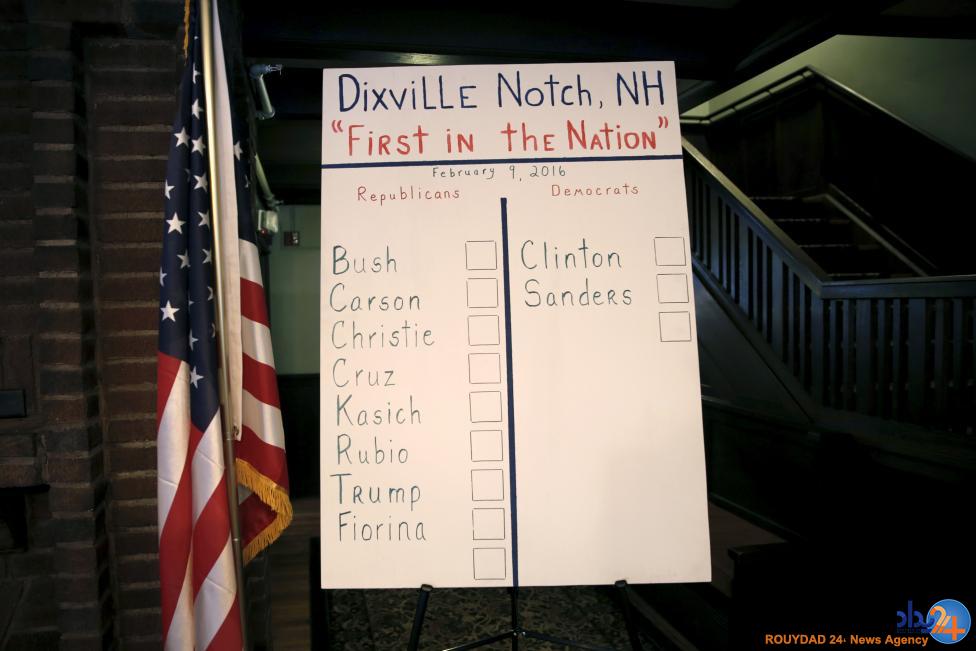 Dixville Notch, NH
"First in the Nation"
February 9, 2016
Republicans
Bush
Carson
Christie
Cruz
Kasich
Rubio
Trump
Fiorina
Democrats
Clinton
Sanders
24
ROUYDAD 24- News Agency